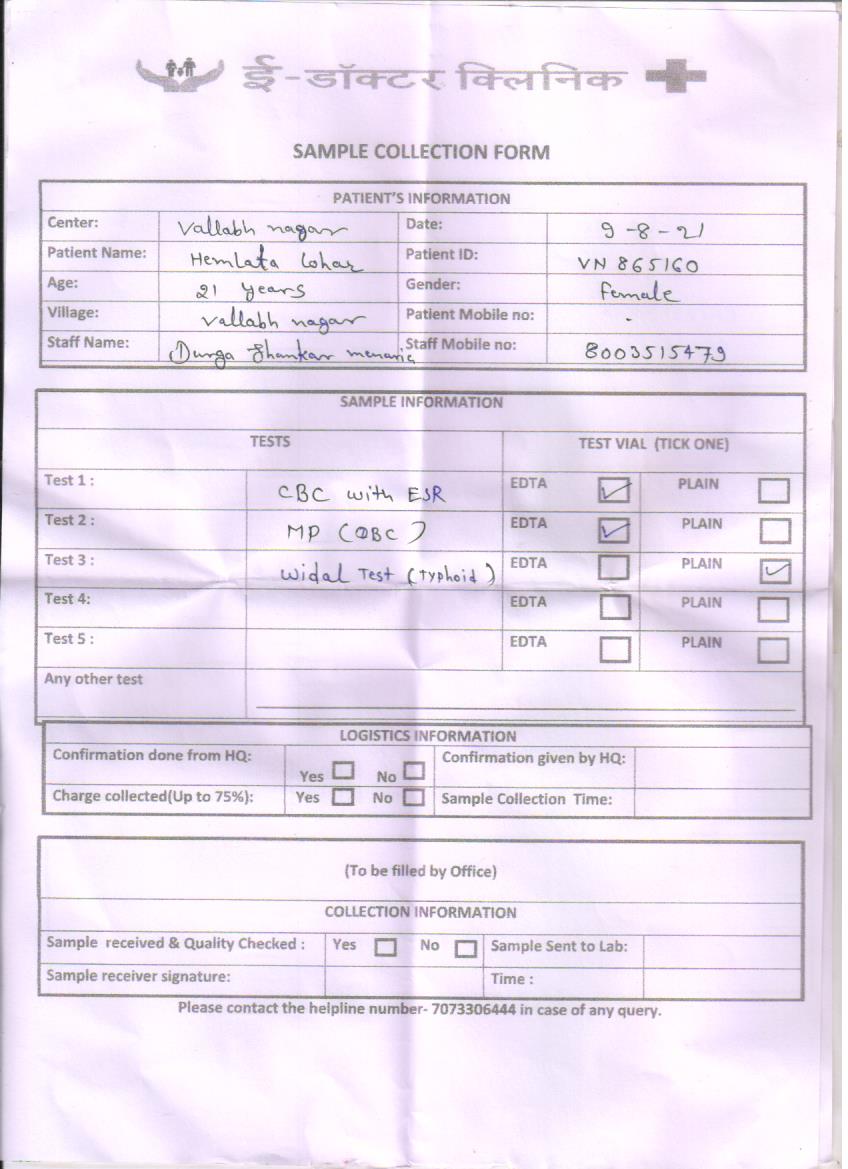 ई-डॉक्टर क्लिनिक
SAMPLE COLLECTION FORM
PATIENT'S INFORMATION
Center: Vallabh nagar Date: 9-8-21
Patient Name: Hemlata lohar Patient ID: VN 865160
Age: 21 years Gender: Female
Village: Vallabh nagar Patient Mobile no: -
Staff Name: Durga Shankar menaria Staff Mobile no: 8003515479
SAMPLE INFORMATION
TESTS TEST VIAL (TICK ONE)
Test 1 : CBC with ESR EDTA ✓ PLAIN
Test 2 : MP (QBC) EDTA ✓ PLAIN
Test 3 : Widal Test (Typhoid) EDTA PLAIN ✓
Test 4: EDTA PLAIN
Test 5 : EDTA PLAIN
Any other test
LOGISTICS INFORMATION
Confirmation done from HQ: Yes No Confirmation given by HQ:
Charge collected(Up to 75%): Yes No Sample Collection Time:
(To be filled by Office)
COLLECTION INFORMATION
Sample received & Quality Checked : Yes No Sample Sent to Lab:
Sample receiver signature: Time :
Please contact the helpline number- 7073306444 in case of any query.